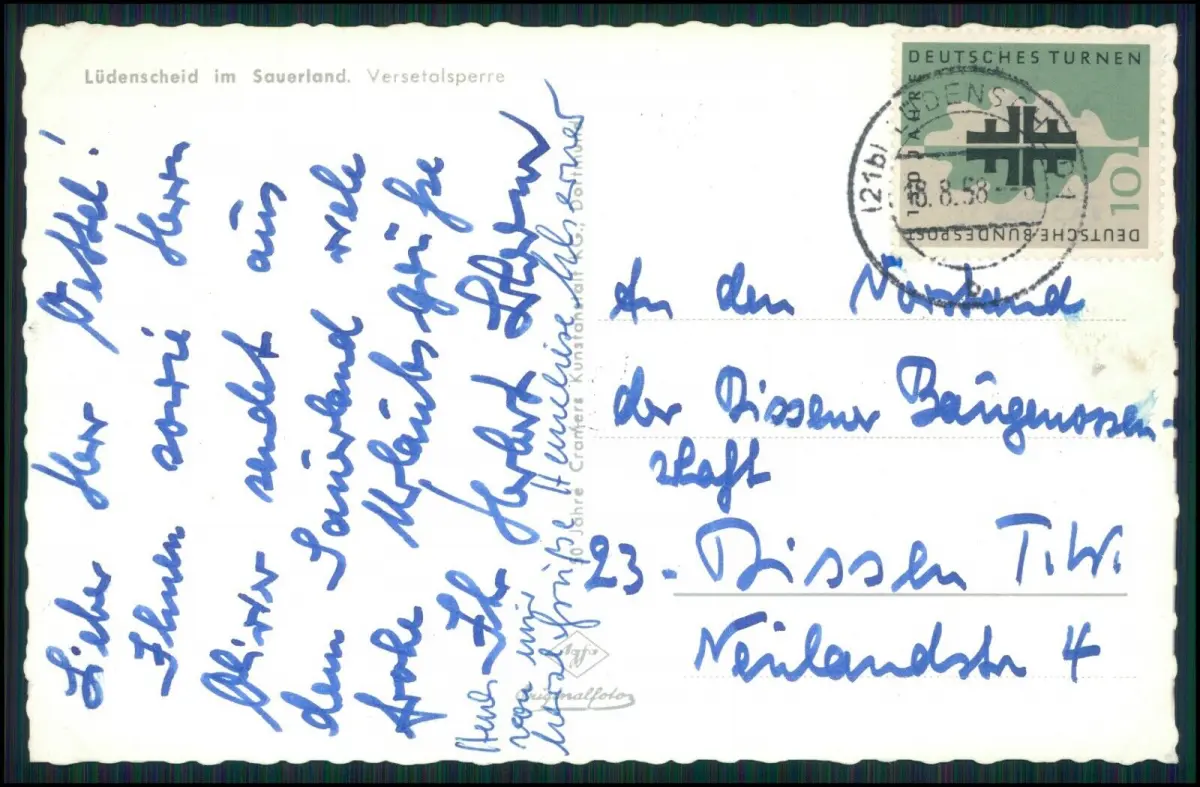 Lüdenscheid im Sauerland. Versetalsperre
Lieber Herr Vettel!
Ihnen sowie Herrn
sendet aus
dem Sauerland viele
frohe Urlaubsgrüße
Ihr Herbert
von mir
Grüße
Jahre Cramers Kunstanstalt KG., Dortmund
Agfa
Originalfoto
DEUTSCHES TURNEN
150 JAHRE
10
DEUTSCHE BUNDESPOST
(21b) LÜDENSCHEID 1
8.8.58
b
An den Vorstand
der Dissener Baugenossen-
schaft
23 - Dissen T.W.
Neulandstr 4